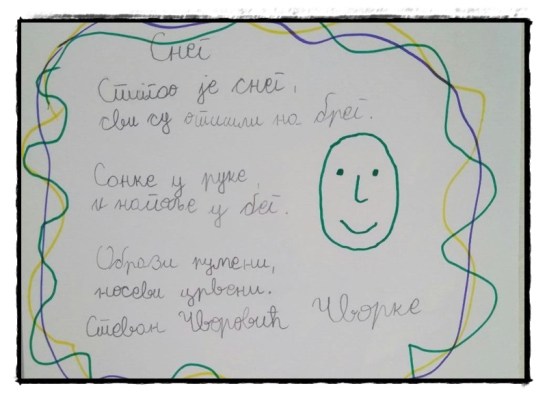 Снег
Стигао је снег,
сви су отишли на брег.
Санке у руке,
и напоље у бег.
Образи румени,
носеви црвени.
Стеван Чворовић Чворке